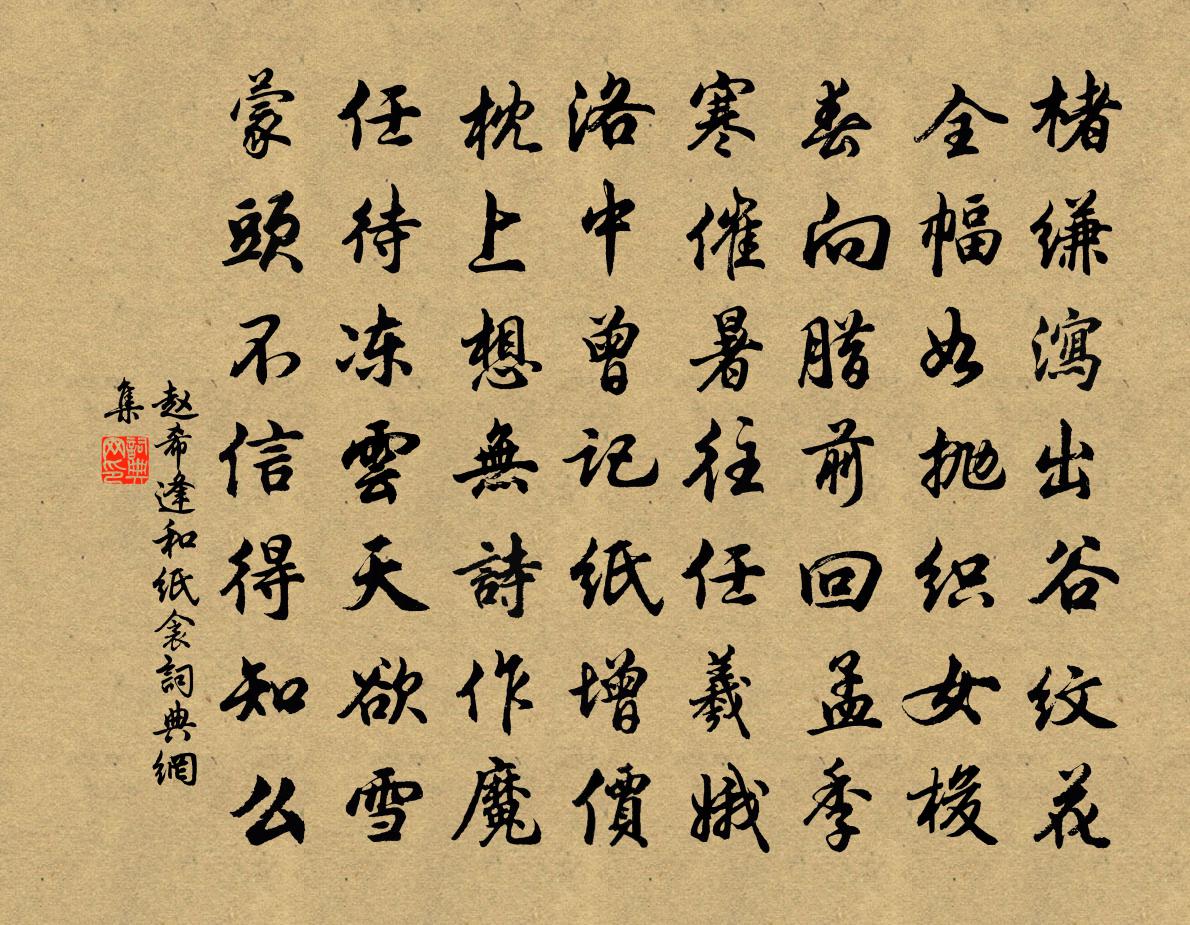 楮缣瀉出谷纹花
全幅如抛织女梭
春向腊前回孟季
寒催暑往任羲娥
洛中曾记纸增價
枕上想無詩作魔
任待冻雲天欲雪
蒙頭不信得知么
赵希逢和纸衾詞典網
集
詞典网印